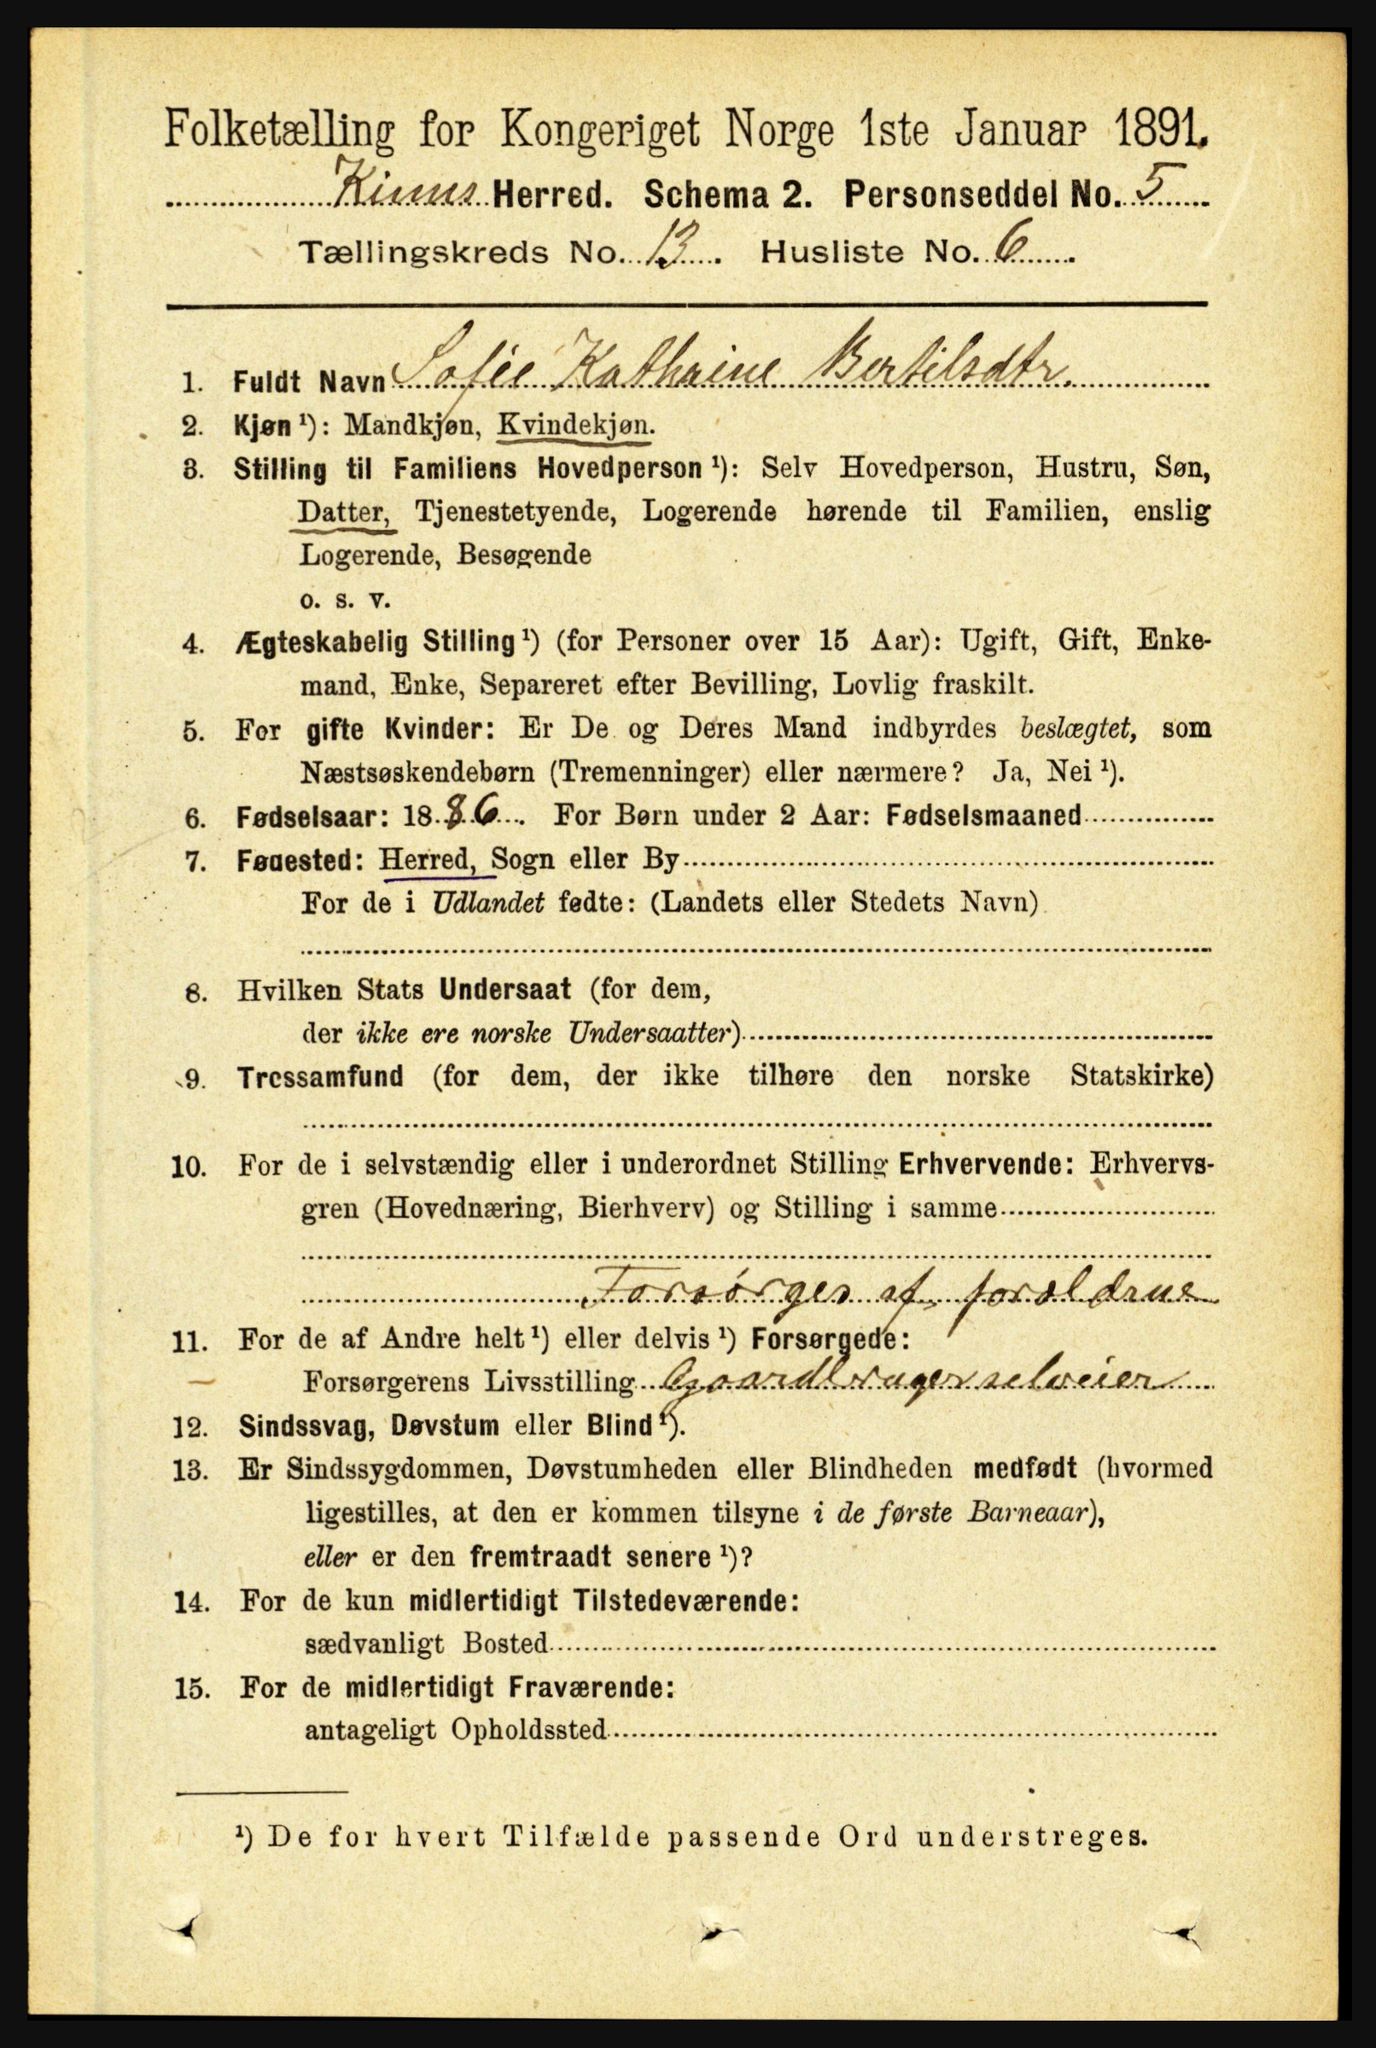 Folketælling for Kongeriget Norge 1ste Januar 1891.
Kinns Herred. Schema 2. Personseddel No. 5
Tællingskreds No. 13. Husliste No. 6
1. Fuldt Navn Sofie Kathrine Bertilsdtr.
2. Kjøn ¹): Mandkjøn, Kvindekjøn.
3. Stilling til Familiens Hovedperson ¹): Selv Hovedperson, Hustru, Søn,
Datter, Tjenestetyende, Logerende hørende til Familien, enslig
Logerende, Besøgende
o. s. v.
4. Ægteskabelig Stilling ¹) (for Personer over 15 Aar): Ugift, Gift, Enke-
mand, Enke, Separeret efter Bevilling, Lovlig fraskilt.
5. For gifte Kvinder: Er De og Deres Mand indbyrdes beslægtet, som
Næstsøskendebørn (Tremenninger) eller nærmere? Ja, Nei ¹).
6. Fødselsaar: 1886. For Børn under 2 Aar: Fødselsmaaned
7. Fødested: Herred, Sogn eller By
For de i Udlandet fødte: (Landets eller Stedets Navn)
8. Hvilken Stats Undersaat (for dem,
der ikke ere norske Undersaatter)
9. Trossamfund (for dem, der ikke tilhøre den norske Statskirke)
10. For de i selvstændig eller i underordnet Stilling Erhvervende: Erhvervs-
gren (Hovednæring, Bierhverv) og Stilling i samme
Forsørges af forældrne
11. For de af Andre helt ¹) eller delvis ¹) Forsørgede:
Forsørgerens Livsstilling Gaardbruger selveier
12. Sindssvag, Døvstum eller Blind ¹).
13. Er Sindssygdommen, Døvstumheden eller Blindheden medfødt (hvormed
ligestilles, at den er kommen tilsyne i de første Barneaar),
eller er den fremtraadt senere ¹)?
14. For de kun midlertidigt Tilstedeværende:
sædvanligt Bosted
15. For de midlertidigt Fraværende:
antageligt Opholdssted
¹) De for hvert Tilfælde passende Ord understreges.